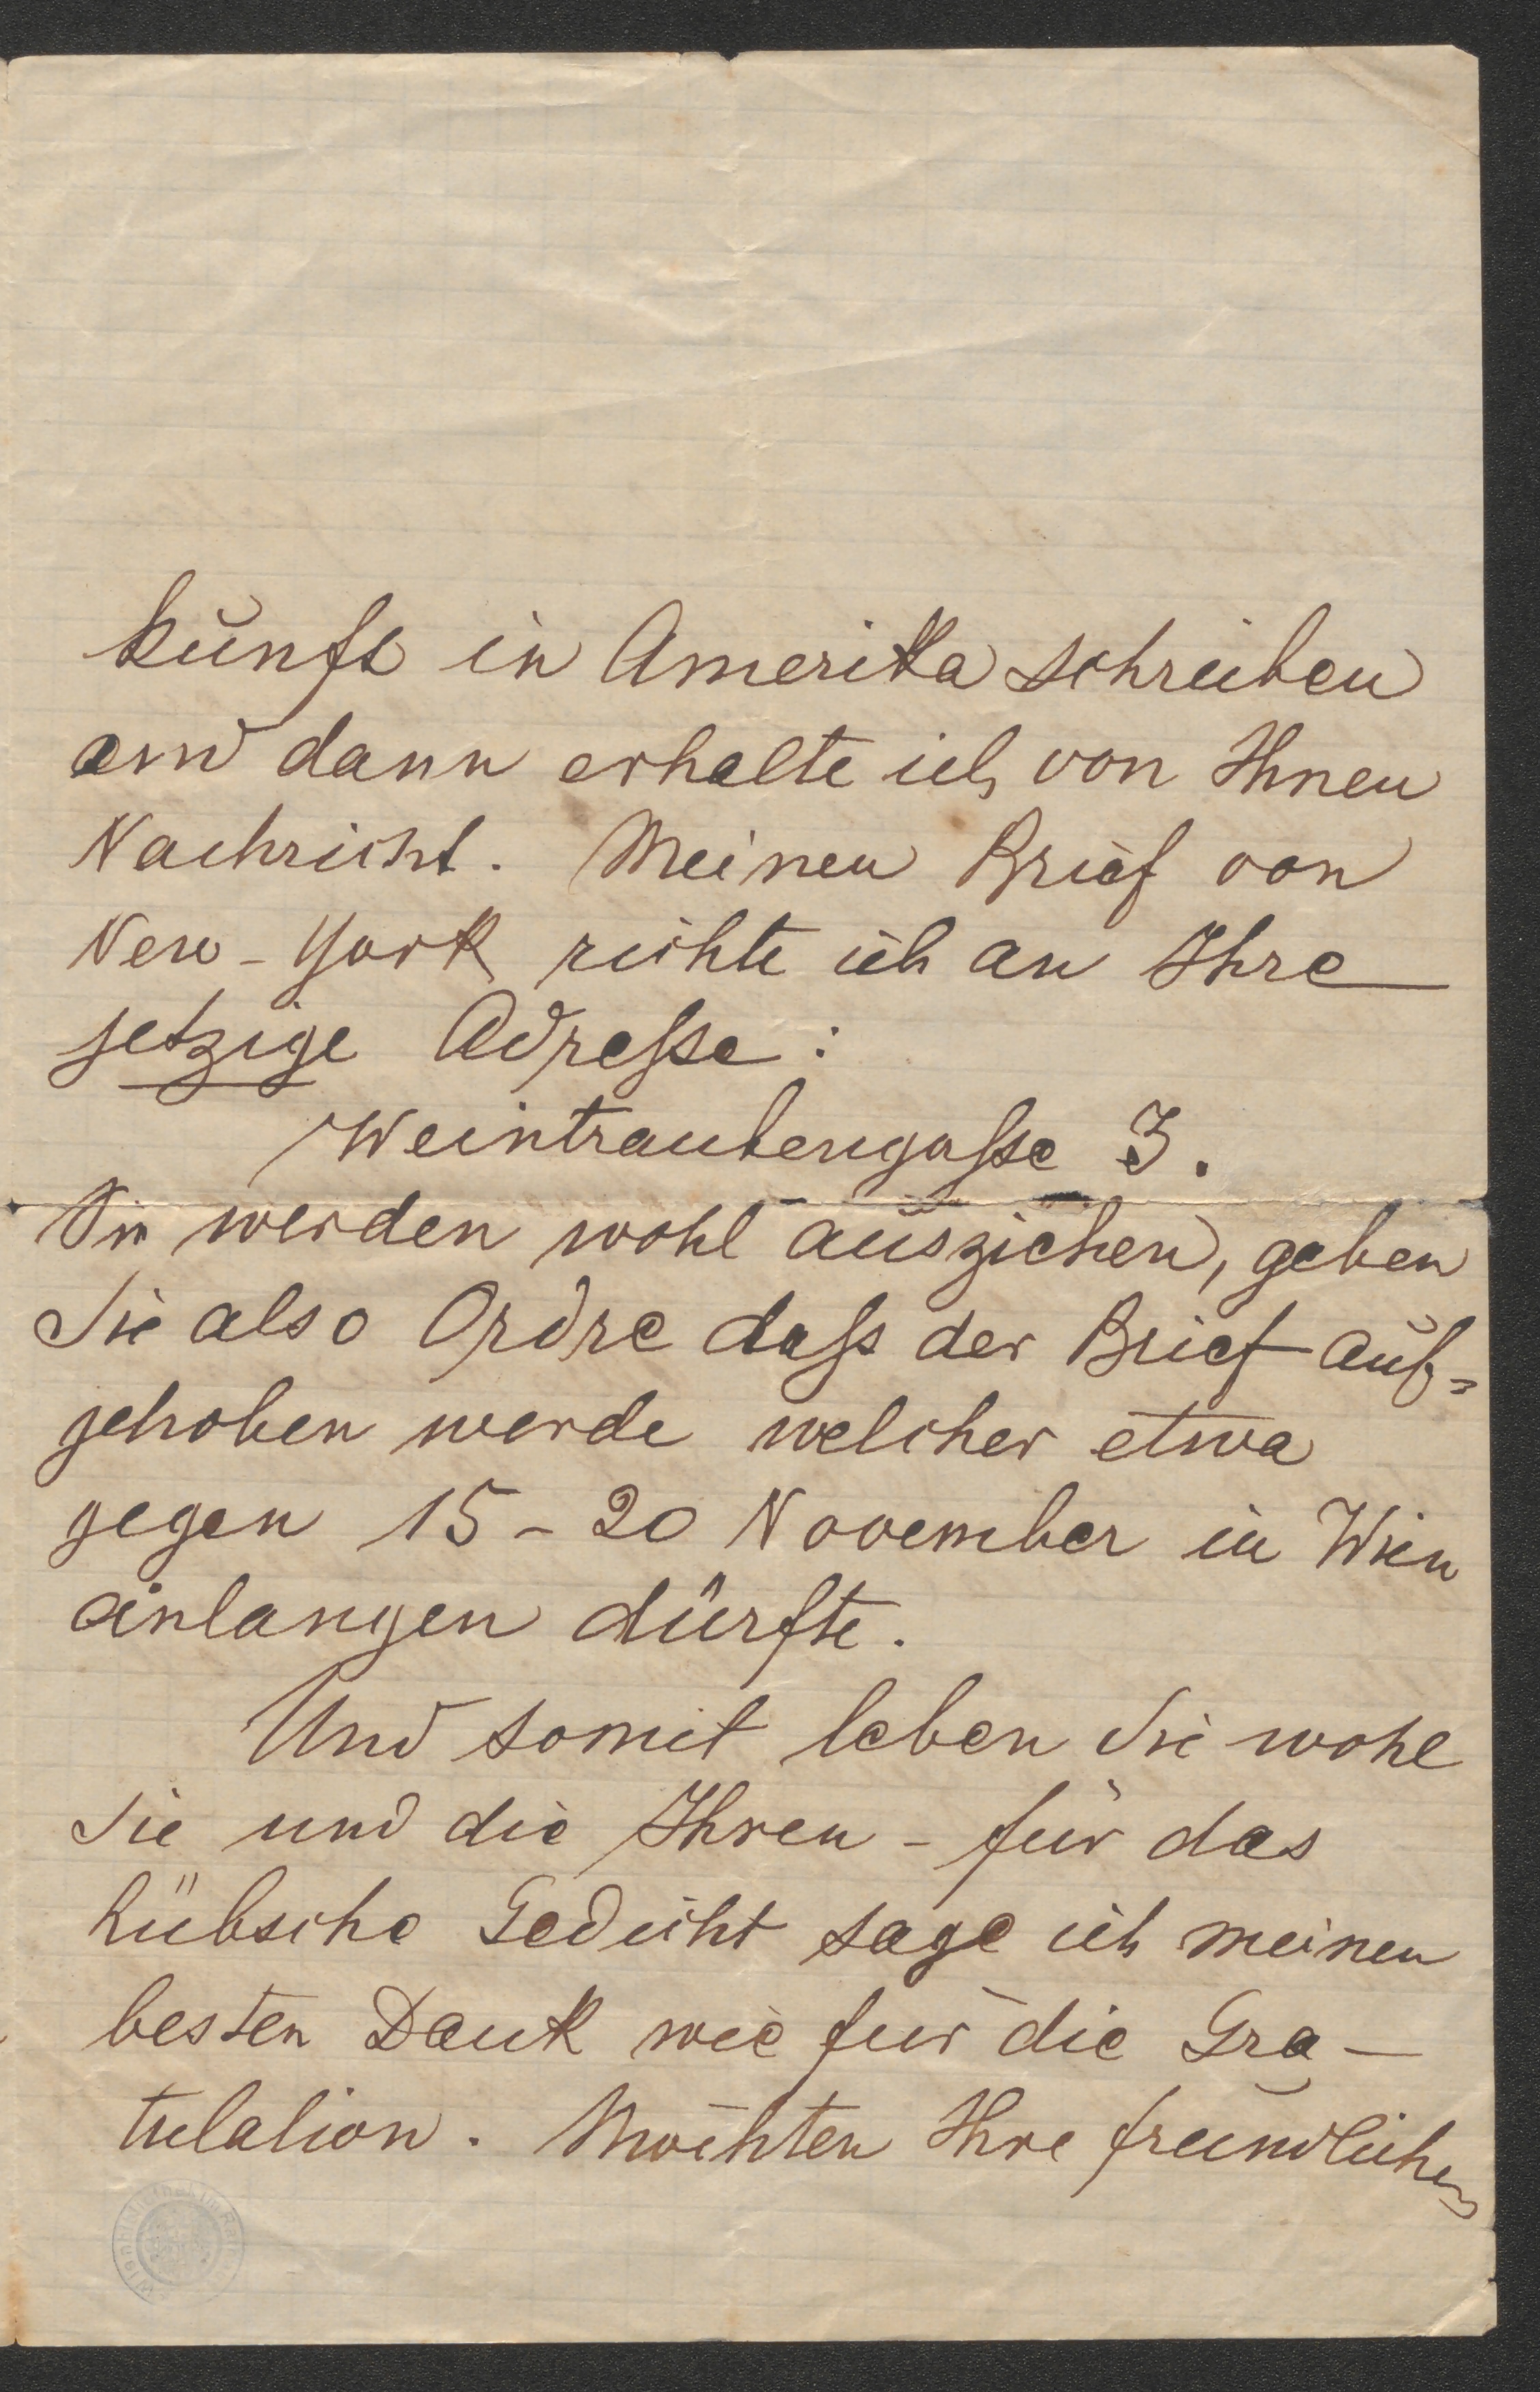 kunft in Amerika schreiben
und dann erhalte ich von Ihnen
Nachricht. Meinen Brief von
New-York richte ich an Ihre
jetzige Adresse:
Weintraubengasse 3.
Sie werden wohl ausziehen, geben
Sie also Ordre dass der Brief auf=
gehoben werde welcher etwa
gegen 15 - 20 November in Wien
einlangen dürfte.
Und somit leben Sie wohl
Sie und die Ihren - für das
hübsche Gedicht sage ich meinen
besten Dank wie für die Gra-
tulation. Möchten Ihre freundlichen